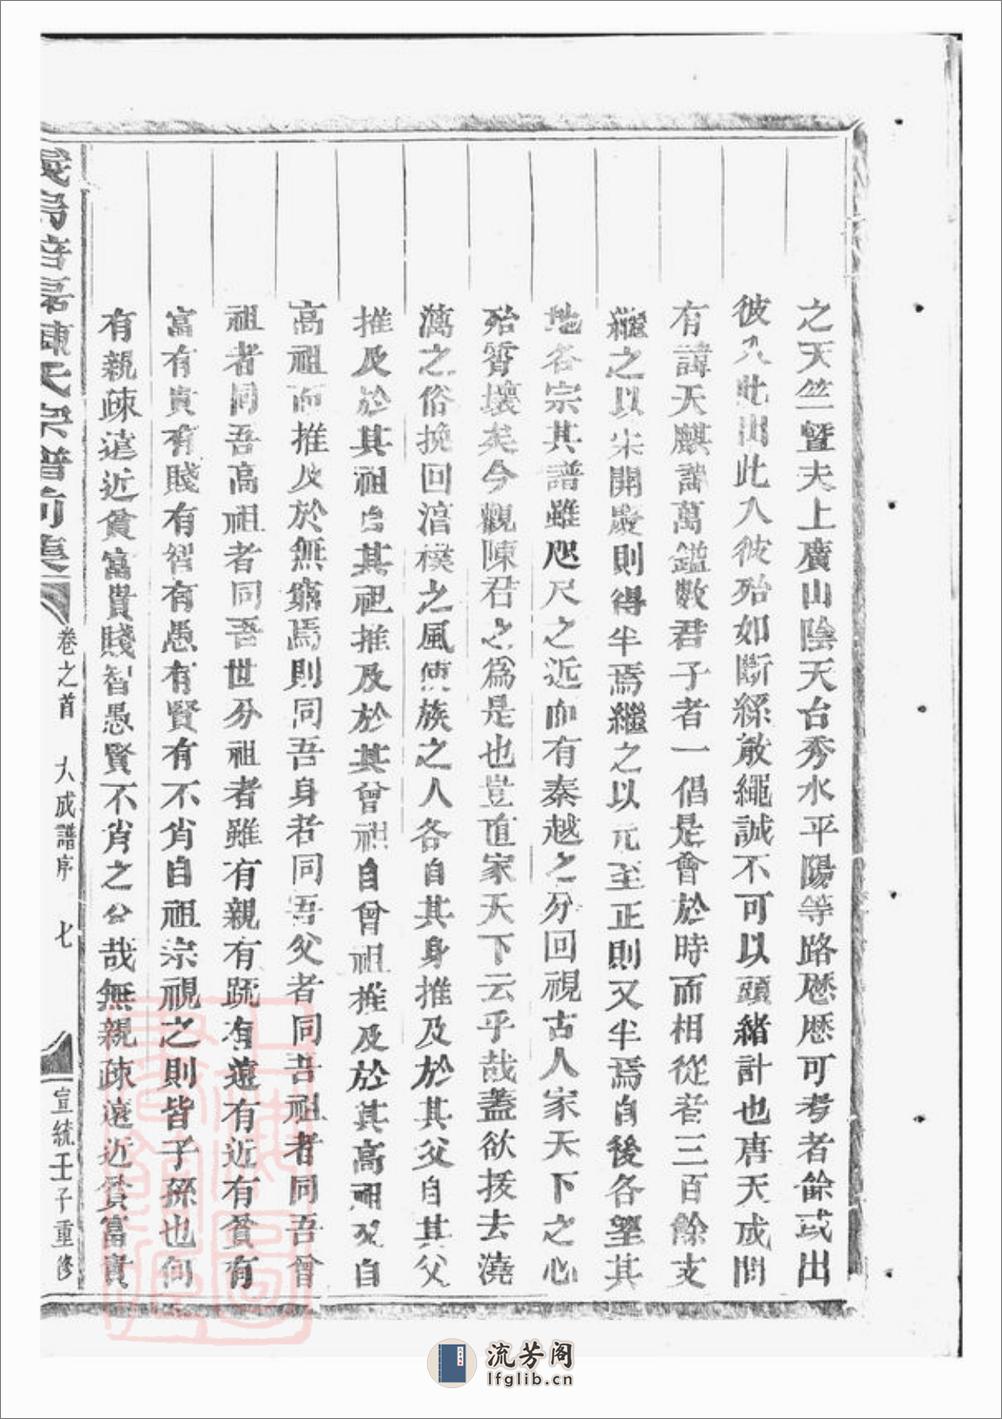 之天竺暨夫上廣山陰天台秀水平陽等路歷歷可考者餘或出
彼入此出此入彼殆如斷絲敝繩誠不可以頭緒計也唐天成間
有諱天麒諱萬鎰數君子者一倡是會於時而相從者三百餘支
繼之以宋開慶則得半焉繼之以元至正則又半焉自後各望其
地各宗其譜雖咫尺之近而有秦越之分回視古人家天下之心
殆霄壤矣今觀陳君之為是也豈直家天下云乎哉蓋欲拨去澆
漓之俗挽回湻樸之風使族之人各自其身推及於其父自其父
推及於其祖自其祖推及於其曾祖自曾祖推及於其高祖又自
高祖而推及於無窮焉則同吾身者同吾父者同吾祖者同吾曾
祖者同吾高祖者同吾世分祖者雖有親有疏有遠有近有貧有
富有貴有賤有智有愚有賢有不肖自祖宗視之則皆子孫也何
有親疎遠近貧富貴賤智愚賢不肖之分哉無親疎遠近貧富貴
陳氏宗譜前集
卷之首 大成譜序 七
宣統壬子重修
流芳阁
lfglib.cn